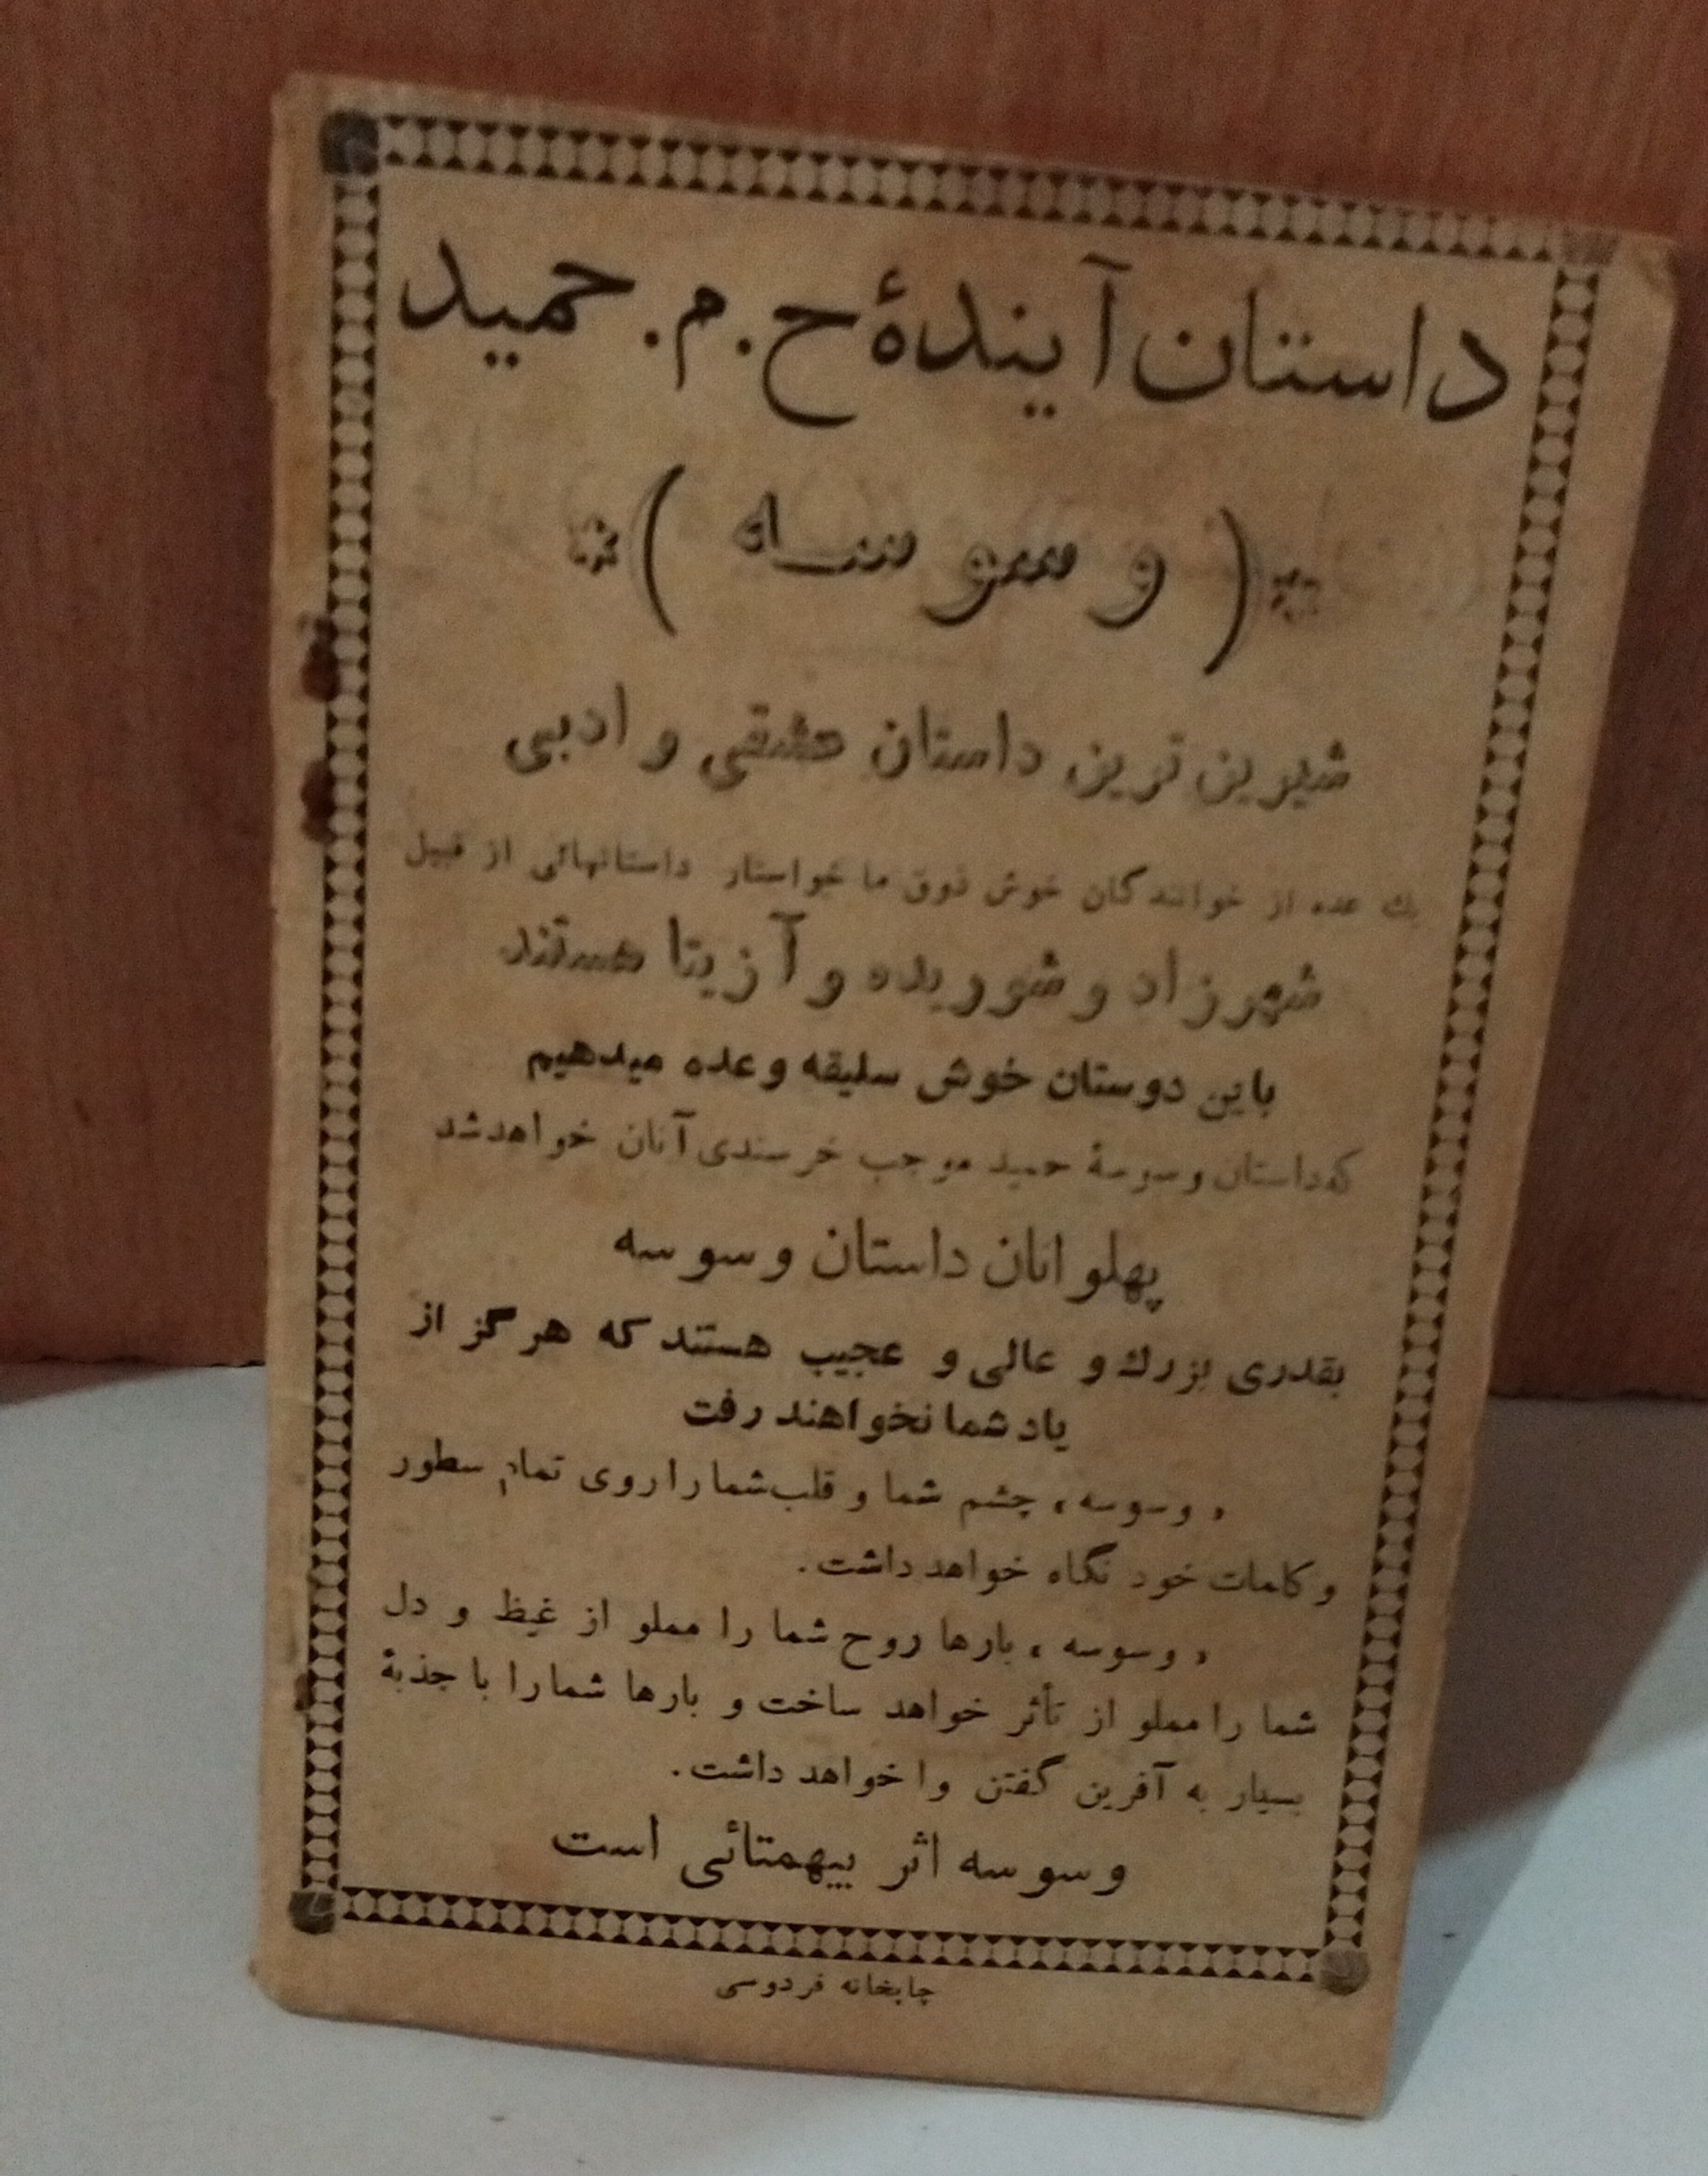 داستان آیندهٔ ح. م. حمید
*( وسوسه )*
شیرین ترین داستان عشقی و ادبی
یك عده از خوانندگان خوش ذوق ما خواستار داستانهائی از قبیل
شهرزاد و شوریده و آزیتا هستند
باین دوستان خوش سلیقه وعده میدهیم
که داستان وسوسهٔ حمید موجب خرسندی آنان خواهد شد
پهلوانان داستان وسوسه
بقدری بزرك و عالی و عجیب هستند که هرگز از
یاد شما نخواهند رفت
« وسوسه » چشم شما و قلب شما را روی تمام سطور
و کلمات خود نگاه خواهد داشت.
« وسوسه » بارها روح شما را مملو از غیظ و دل
شما را مملو از تأثر خواهد ساخت و بارها شما را با جذبهٔ
بسیار به آفرین گفتن وا خواهد داشت.
وسوسه اثر بیهمتائی است
چاپخانه فردوسی